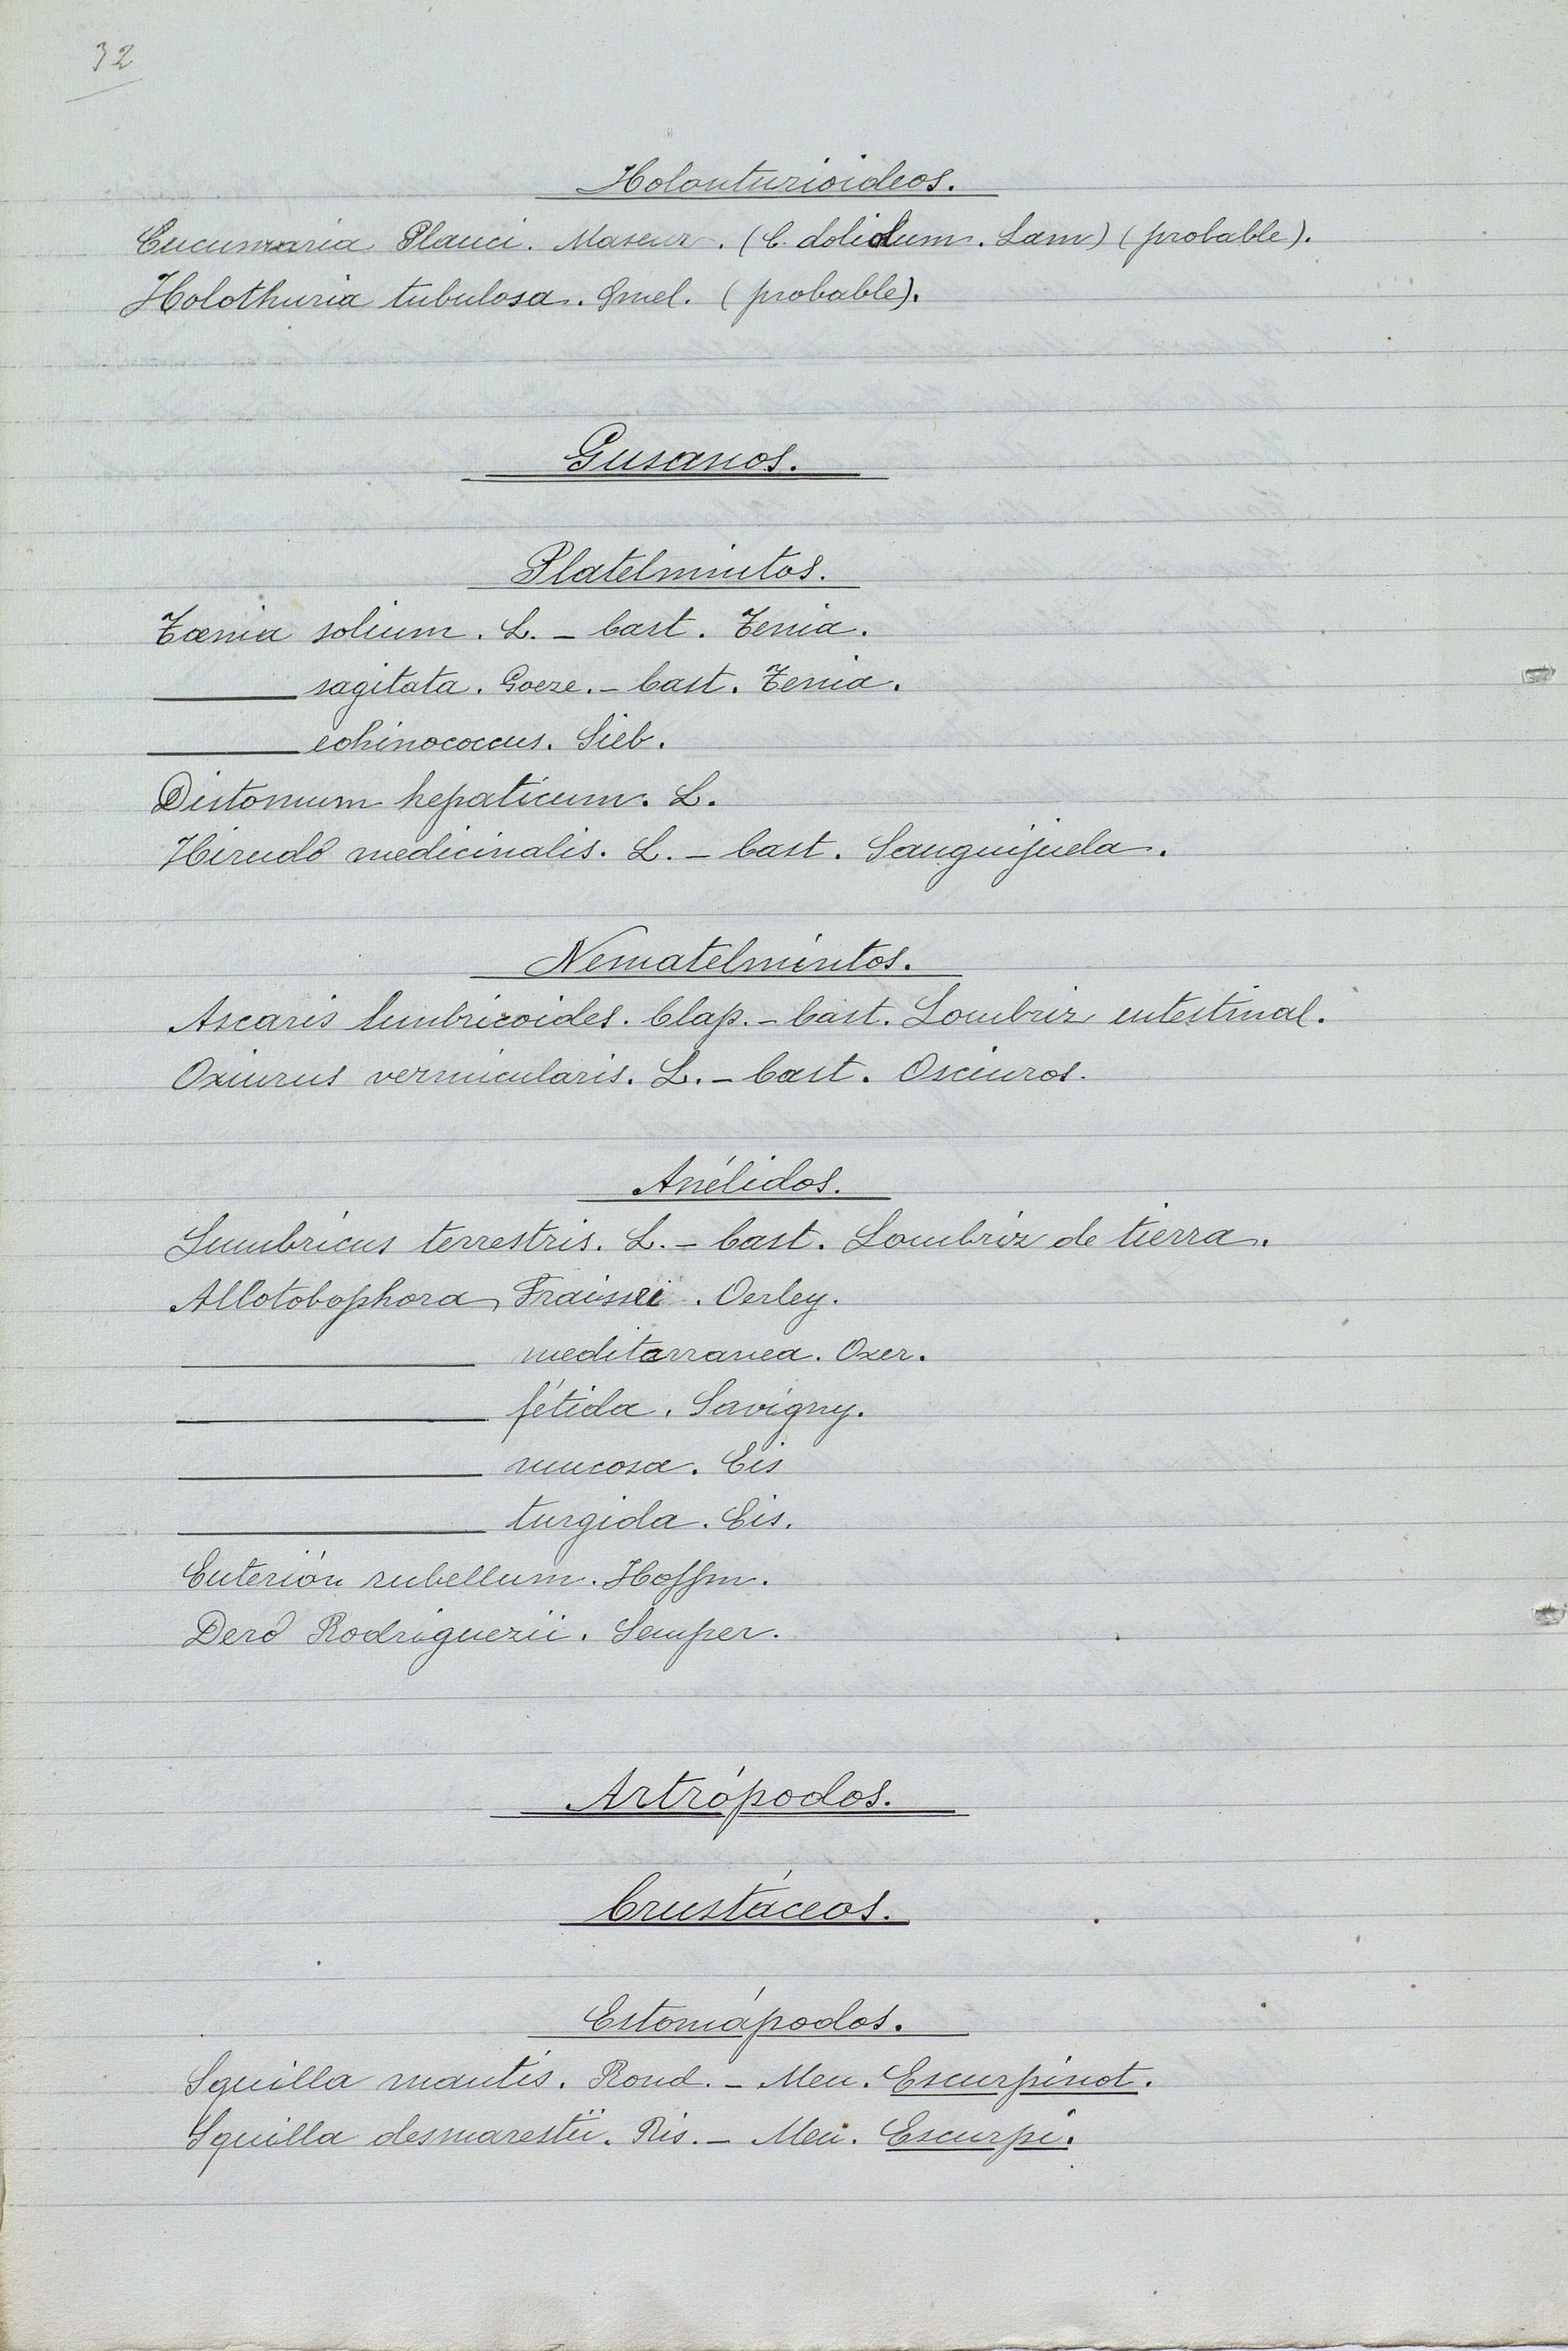 32
Holoturioideos.
Cucumaria Planci. Maseur. (C. dolidum. Lam) (probable).
Holothuria tubulosa. Gmel. (probable).
Gusanos.
Platelmintos.
Tænia solium. L. - Cast. Tenia.
——— sagitata. Goeze. - Cast. Tenia.
——— echinococcus. Sieb.
Distomum hepaticum. L.
Hirudo medicinalis. L. - Cast. Sanguijuela.
Nematelmintos.
Ascaris lumbricoides. Clap. - Cast. Lombriz intestinal.
Oxiurus vermicularis. L. - Cast. Osciuros.
Anélidos.
Lumbricus terrestris. L. - Cast. Lombriz de tierra.
Allotobophora Fraissei. Oerley.
——— mediterranea. Oxer.
——— fétida. Savigny.
——— mucosa. Eis
——— turgida. Eis.
Enterión rubellum. Hoffm.
Dero Rodriguezii. Semper.
Artrópodos.
Crustáceos.
Estomápodos.
Squilla mantis. Rond. - Men. Escurpinot.
Squilla desmarestii. Ris. - Men. Escurpi.